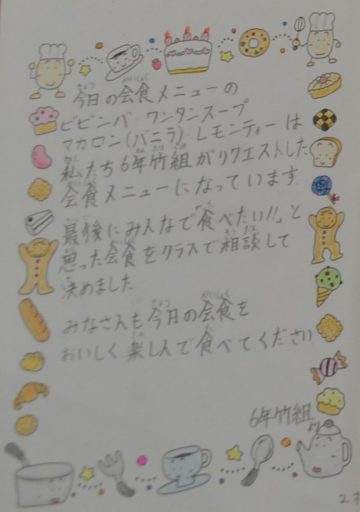 今日の会食メニューの
ビビンバ ワンタンスープ
マカロン(バニラ) レモンティーは
私たち6年竹組がリクエストした
会食メニューになっています
最後にみんなで「食べたい!!」と
思った会食をクラスで相談して
決めました
みなさんも今日の会食を
おいしく楽しんで食べてください
6年竹組より
27